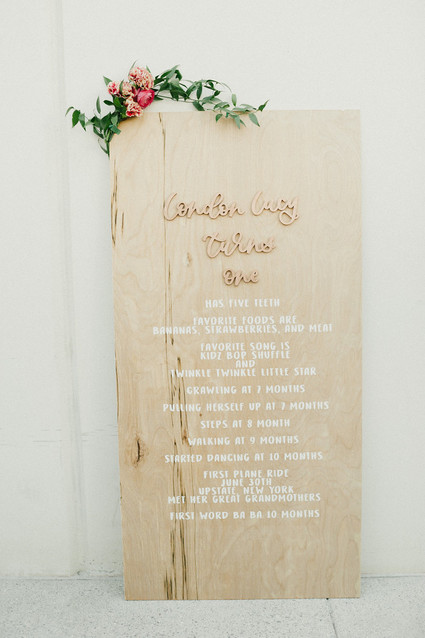 London Lucy
Turns
one
HAS FIVE TEETH
FAVORITE FOODS ARE
BANANAS, STRAWBERRIES, AND MEAT
FAVORITE SONG IS
KIDZ BOP SHUFFLE
AND
TWINKLE TWINKLE LITTLE STAR
CRAWLING AT 7 MONTHS
PULLING HERSELF UP AT 7 MONTHS
STEPS AT 8 MONTH
WALKING AT 9 MONTHS
STARTED DANCING AT 10 MONTHS
FIRST PLANE RIDE
JUNE 30TH
UPSTATE, NEW YORK
MET HER GREAT GRANDMOTHERS
FIRST WORD BA BA 10 MONTHS